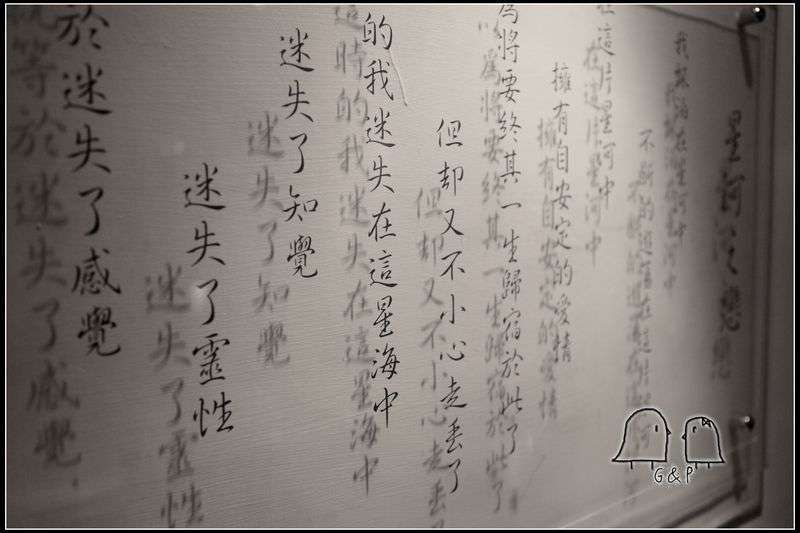 星河
在星河中
不斷的遊蕩在這
在這片星河中
擁有自安定的愛情
為將要終其一生歸宿於此了
但却又不小心走丟了
的我迷失在這星海中
迷失了知覺
迷失了靈性
於迷失了感覺
G&P